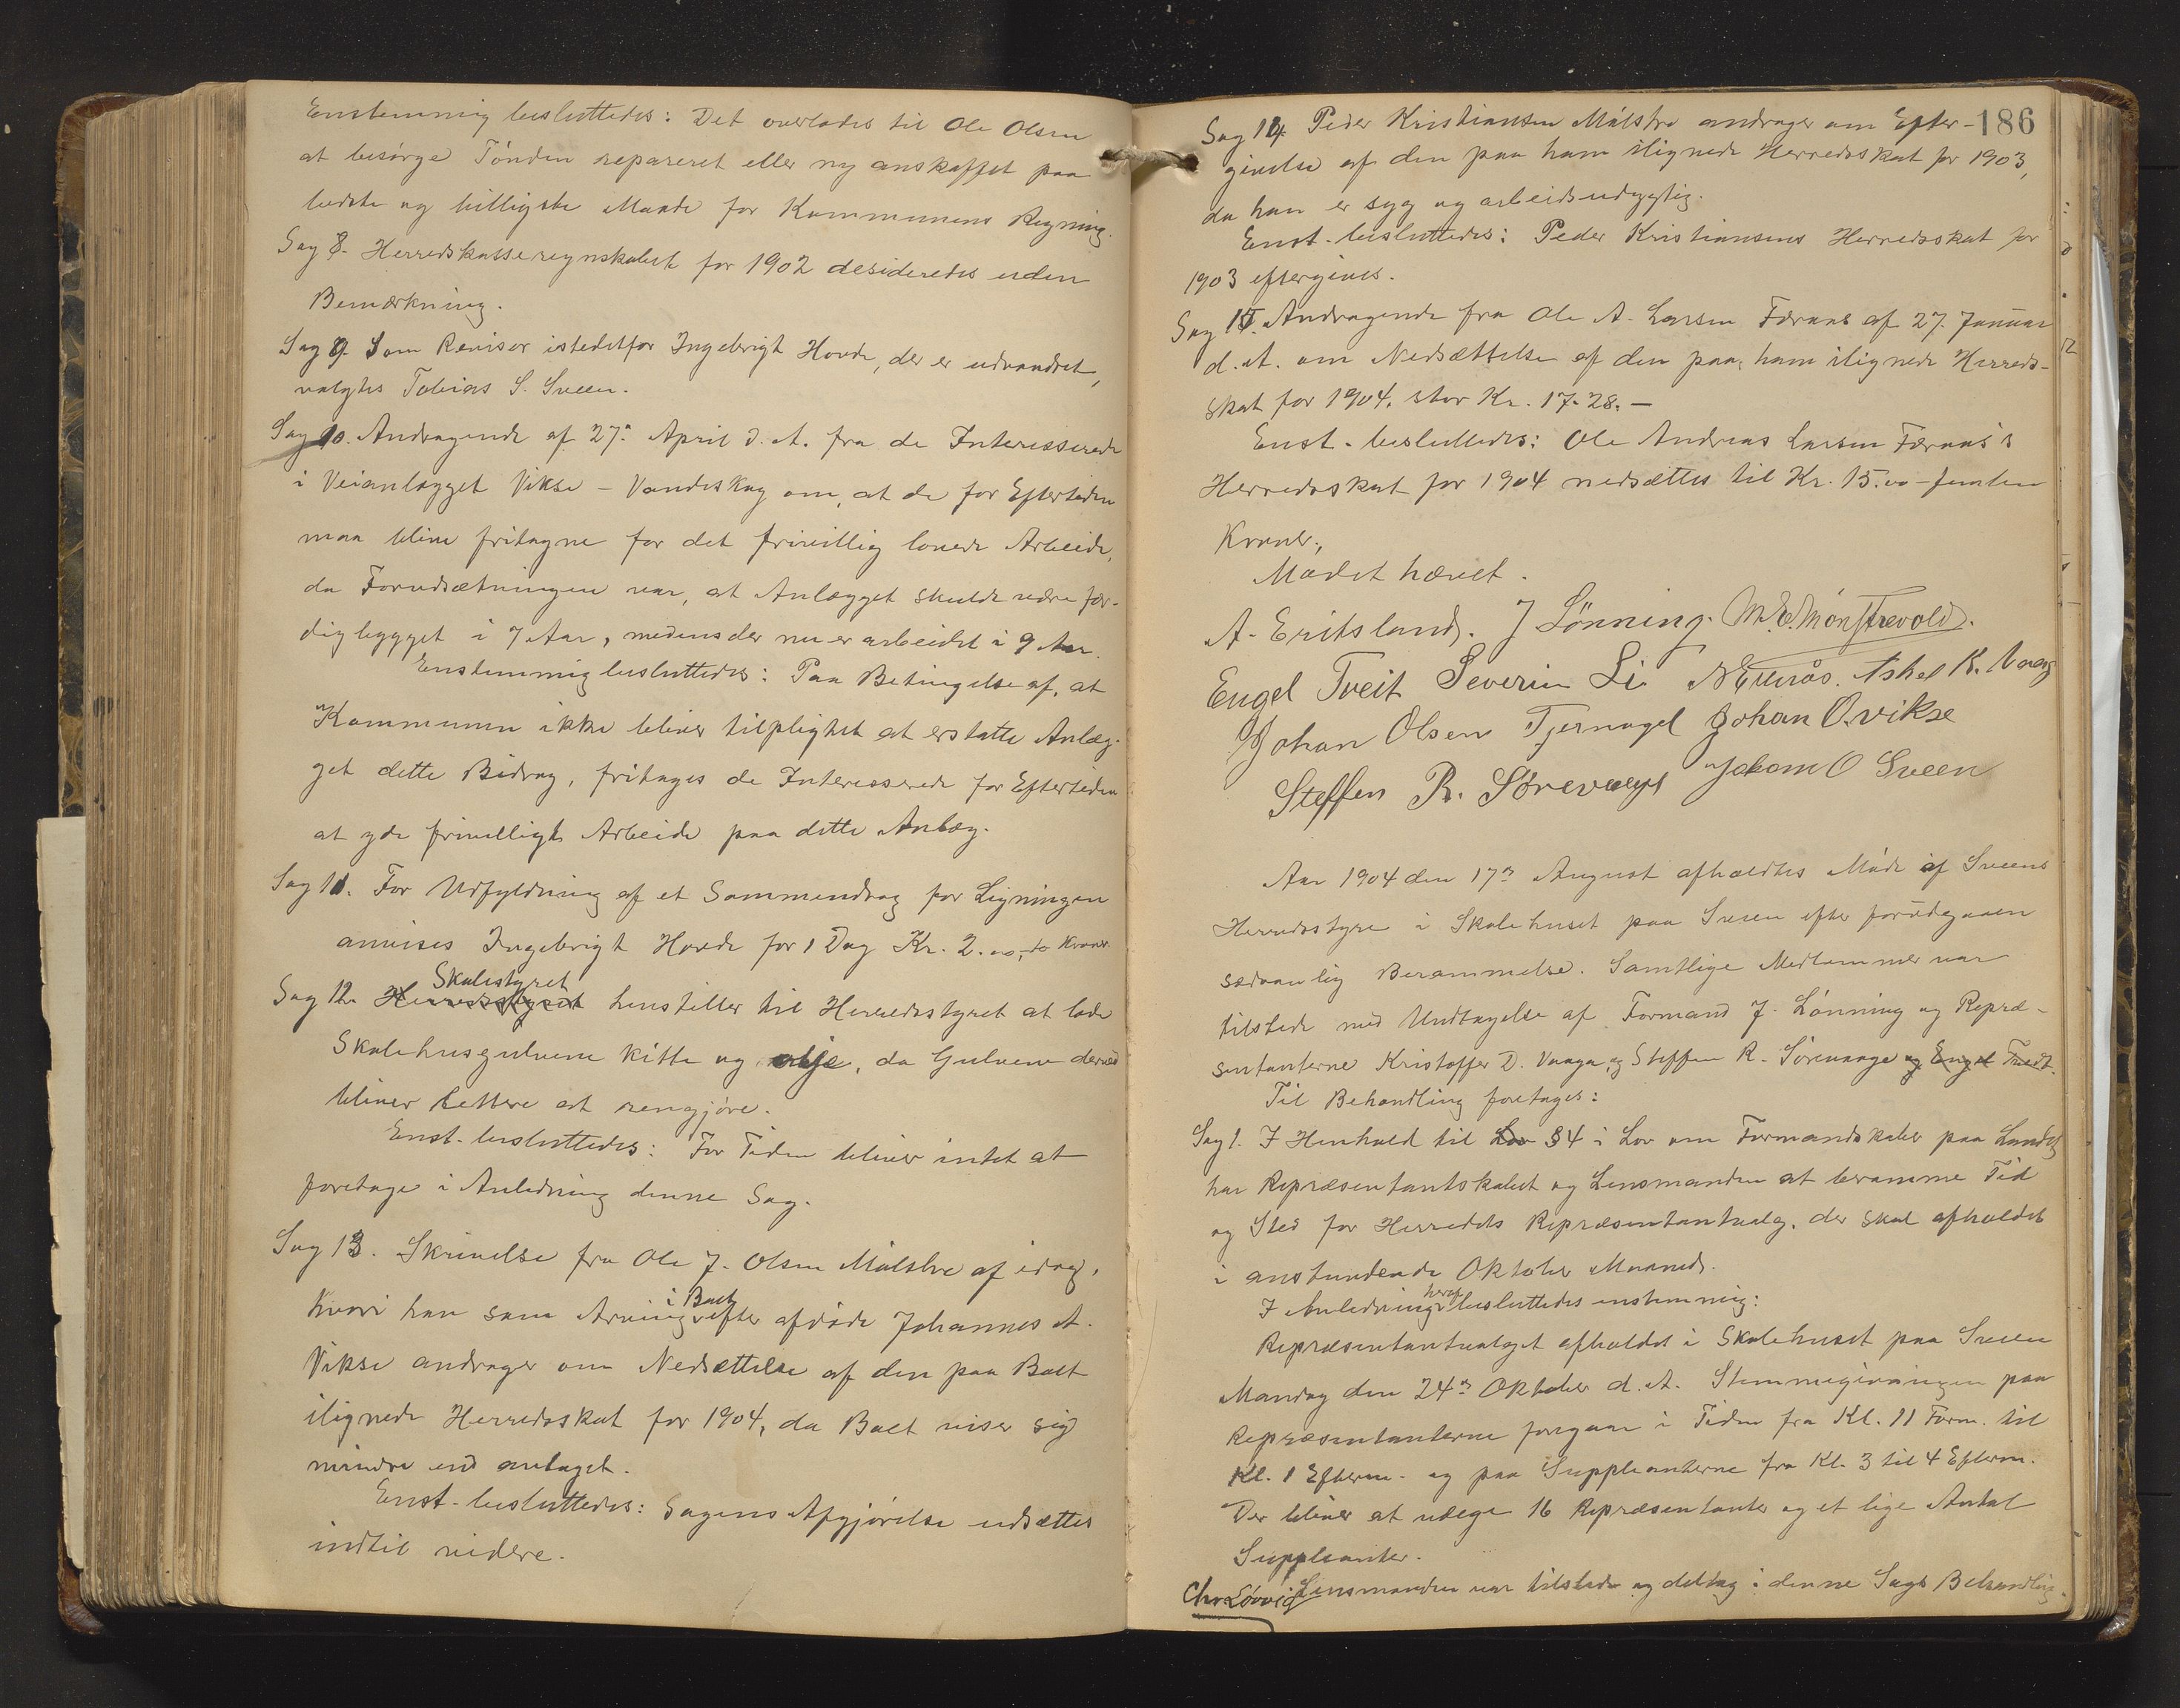 Enstemmig besluttedes: Det overlades til Ole Olsen
at besørge Tønden repareret eller ny anskaffet paa
bedste og billigste Maade for Kommunens Regning.
Sag 8. Herredskasseregnskabet for 1902 desideredes uden
Bemærkning.
Sag 9. Som Revisor istedetfor Ingebrigt Hovde, der er udvandret,
valgtes Tobias S. Sveen.
Sag 10. Andragende af 27de April d. A. fra de Interesserede
i Veianlægget Vikse - Vandeskog om, at de for Eftertiden
maa blive fritagne for det frivillig lovede Arbeide,
da Forudsætningen var, at Anlægget skulde være fær-
dig bygget i 7 Aar, medens der nu er arbeidet i 9 Aar.
Enstemmig besluttedes: Paa Betingelse af, at
Kommunen ikke bliver tilpligtet at erstatte Anlæg-
get dette Bidrag, fritages de Interesserede for Eftertiden
at yde frivilligt Arbeide paa dette Anlæg.
Sag 11. For Udfyldning af et Sammendrag for Ligningen
anvises Ingebrigt Hovde for 1 Dag Kr. 2.00, to Kroner.
Skolestyret
Sag 12. Herredsstyret henstiller til Herredsstyret at lade
Skolehusgulvene kitte og olje, da Gulvene derved
bliver lettere at rengjøre.
Enst. besluttedes: For Tiden bliver intet at
foretage i Anledning denne Sag.
Sag 13. Skrivelse fra Ole J. Olsen Målstre af idag,
i Boet
hvori han som Arving efter afdøde Johannes A.
Vikse andrager om Nedsættelse af den paa Boet
ilignede Herredsskat for 1904, da Boet viser sig
mindre end antaget.
Enst. besluttedes: Sagens Afgjørelse udsættes
indtil videre.
186
Sag 14. Peder Kristiansen Målstre andrager om Efter-
givelse af den paa ham ilignede Herredsskat for 1903,
da han er syg og arbeidsudygtig.
Enst. besluttedes: Peder Kristiansens Herredsskat for
1903 eftergives.
Sag 15. Andragende fra Ole A. Larsen Færaas af 27. Januar
d. A. om Nedsættelse af den paa ham ilignede Herreds-
skat for 1904, stor Kr. 17.28.-
Enst. besluttedes: Ole Andreas Larsen Færaas's
Herredsskat for 1904 nedsættes til Kr. 15.00 - femten
Kroner.,
Mødet hævet.
A. Eritsland. J Lønning. M. E. Mønstrevold.
Engel Tveit Severin Li Askel K. Vaag
Johan Olsen Tjernagel Johan O. vikse
Steffen R. Sørevaage Johan O Sveen
Aar 1904 den 17de August afholdtes Møde af Sveens
Herredsstyre i Skolehuset paa Sveen efter forudgaaen
sedvanlig Berammelse. Samtlige Medlemmer var
tilstede med Undtagelse af Formand J. Lønning og Repræ-
sentanterne Kristoffer D. Vaaga, og Steffen R. Sørevaage og Engel Tveit.
Til Behandling foretages:
Sag 1. I Henhold til Lov § 4 i Lov om Formandskaber paa Landet
har Repræsentantskabet og Lensmanden at beramme Tid
og Sted for Herredets Repræsentantvalg, der skal afholdes
i anstundende Oktober Maaned.
heraf
I Anledning besluttedes enstemmig:
Repræsentantvalget afholdes i Skolehuset paa Sveen
Mandag den 24de Oktober d. A. Stemmegivningen paa
Repræsentanterne foregaar i Tiden fra Kl. 11 Form. til
Kl. 1 Efterm. og paa Suppleanterne fra Kl. 3 til 4 Efterm.
Der bliver at udvælge 16 Repræsentanter og et lige Antal
Suppleanter.
Lensmanden var tilstede og deltog i denne Sags Behandling.
Chr. Løvvig